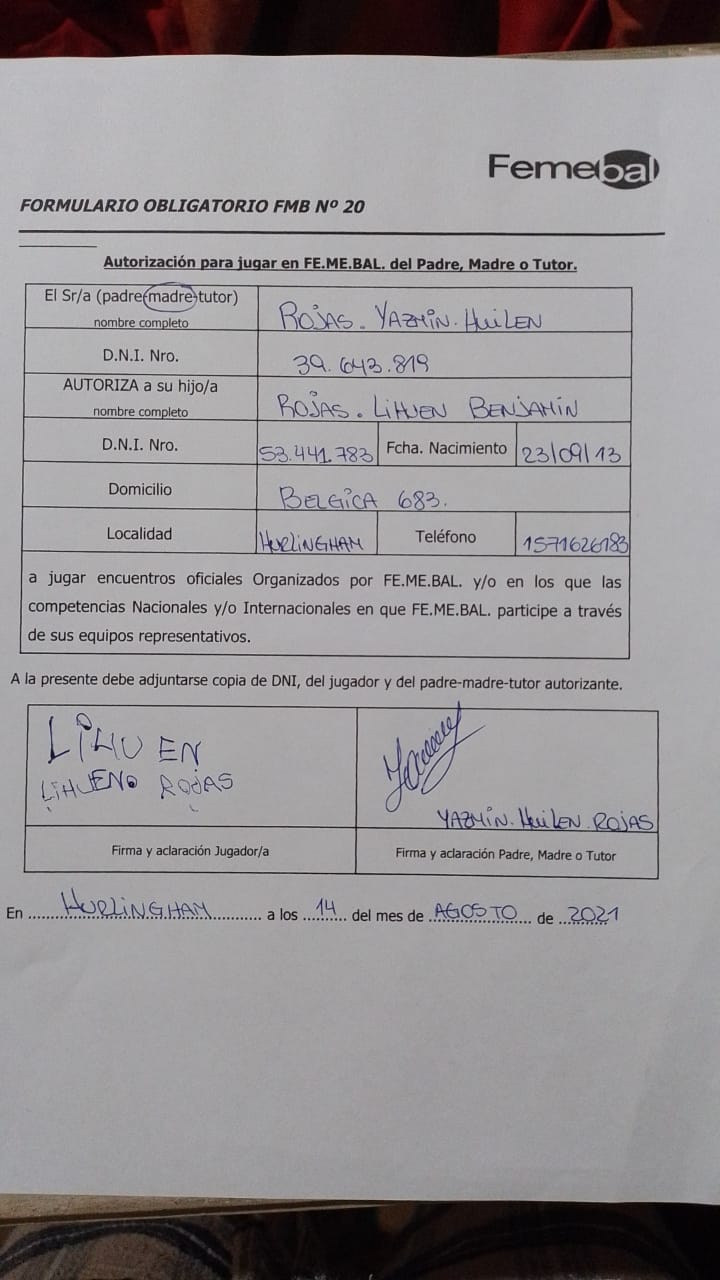 Femebal
FORMULARIO OBLIGATORIO FMB Nº 20
Autorización para jugar en FE.ME.BAL. del Padre, Madre o Tutor.
El Sr/a (padre-madre-tutor)
nombre completo
ROJAS. YAZMÍN. HUILEN
D.N.I. Nro.
39.643.819
AUTORIZA a su hijo/a
nombre completo
ROJAS. LIHUEN BENJAMÍN
D.N.I. Nro. 53.441.783 Fcha. Nacimiento 23/09/13
Domicilio BELGICA 683.
Localidad HURLINGHAM Teléfono 1571626183
a jugar encuentros oficiales Organizados por FE.ME.BAL. y/o en los que las
competencias Nacionales y/o Internacionales en que FE.ME.BAL. participe a través
de sus equipos representativos.
A la presente debe adjuntarse copia de DNI, del jugador y del padre-madre-tutor autorizante.
LIHUEN
LIHUENO ROJAS
YAZMÍN. HUILEN. ROJAS
Firma y aclaración Jugador/a
Firma y aclaración Padre, Madre o Tutor
En HURLINGHAM a los 14 del mes de AGOSTO de 2021